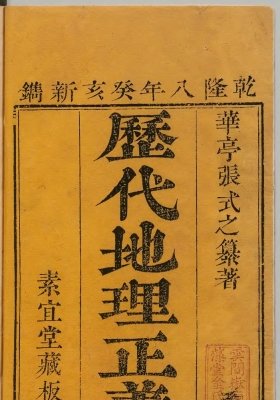 乾隆八年癸亥新鐫
華亭張式之纂著
歷代地理正義
素宜堂藏板